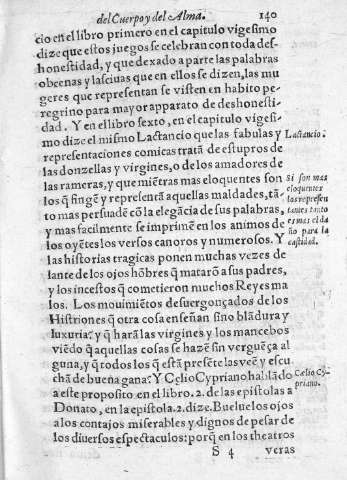 del Cuerpo y del Alma. 140
cio en el libro primero en el capitulo vigesimo
dize que estos juegos se celebran con toda des-
honestidad, y que dexado a parte las palabras
obcenas y lasciuas que en ellos se dizen, las mu
geres que representan se visten en habito pe-
regrino para mayor apparato de deshonesti-
dad. Y en el libro sexto, en el capitulo vigesi-
mo dize el mismo Lactancio que las fabulas y
Lactancio.
representaciones comicas tratã de estupros de
las donzellas y virgines, o de los amadores de
las rameras, y que miẽtras mas eloquentes son
los q̃ fingẽ y representã aquellas maldades, tã-
to mas persuadẽ cõ la elegãcia de sus palabras,
y mas facilmente se imprimẽ en los animos de
los oyẽtes los versos canoros y numerosos. Y
Si son mas
eloquentes
los represen
tantes tanto
es mas el da
ño para la
castidad.
las historias tragicas ponen muchas vezes de
lante de los ojos hõbres q̃ matarõ a sus padres,
y los incestos q̃ cometieron muchos Reyes ma
los. Los mouimiẽtos desuergonçados de los
Histriones q̃ otra cosa enseñan sino blãdura y
luxuria? y q̃ harã las virgines y los mancebos
viẽdo q̃ aquellas cosas se hazẽ sin verguẽça al
guna, y q̃ todos los q̃ estã presẽtes las veẽ y escu
chã de buena gana? Y Celio Cypriano hablãdo
Cælio Cy-
priano.
a este proposito en el libro. 2. de las epistolas a
Donato, en la epistola. 2. dize. Buelue los ojos
a los contajos miserables y dignos de pesar de
los diuersos espectaculos: porq̃ en los theatros
S 4 veras